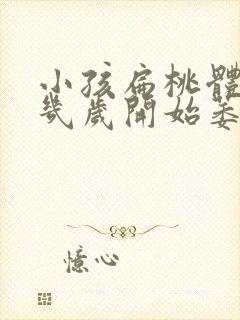 小孩扁桃體
幾歲開始萎
憶心